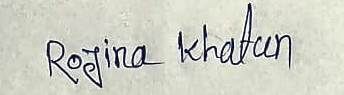 Rojina Khatun